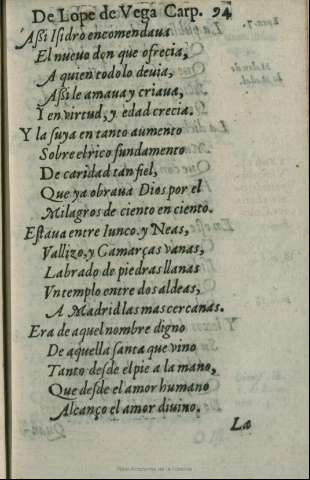 De Lope de Vega Carp. 94
Aßi Isidro encomendaua
El nueuo don que ofrecia,
A quien todo lo deuia,
Aßi le amaua y criaua,
Y en virtud, y edad crecia.
Y la suya en tanto aumento
Sobre el rico fundamento
De caridad tan fiel,
Que ya obraua Dios por el
Milagros de ciento en ciento.
Estaua entre Iunco, y Neas,
Vallizo, y Camarças vanas,
Labrado de piedras llanas
Vn templo entre dos aldeas,
A Madrid las mas cercanas.
Era de aquel nombre digno
De aquella santa que vino
Tanto desde el pie a la mano,
Que desde el amor humano
Alcanço el amor diuino.
La
Real Academia de la Historia